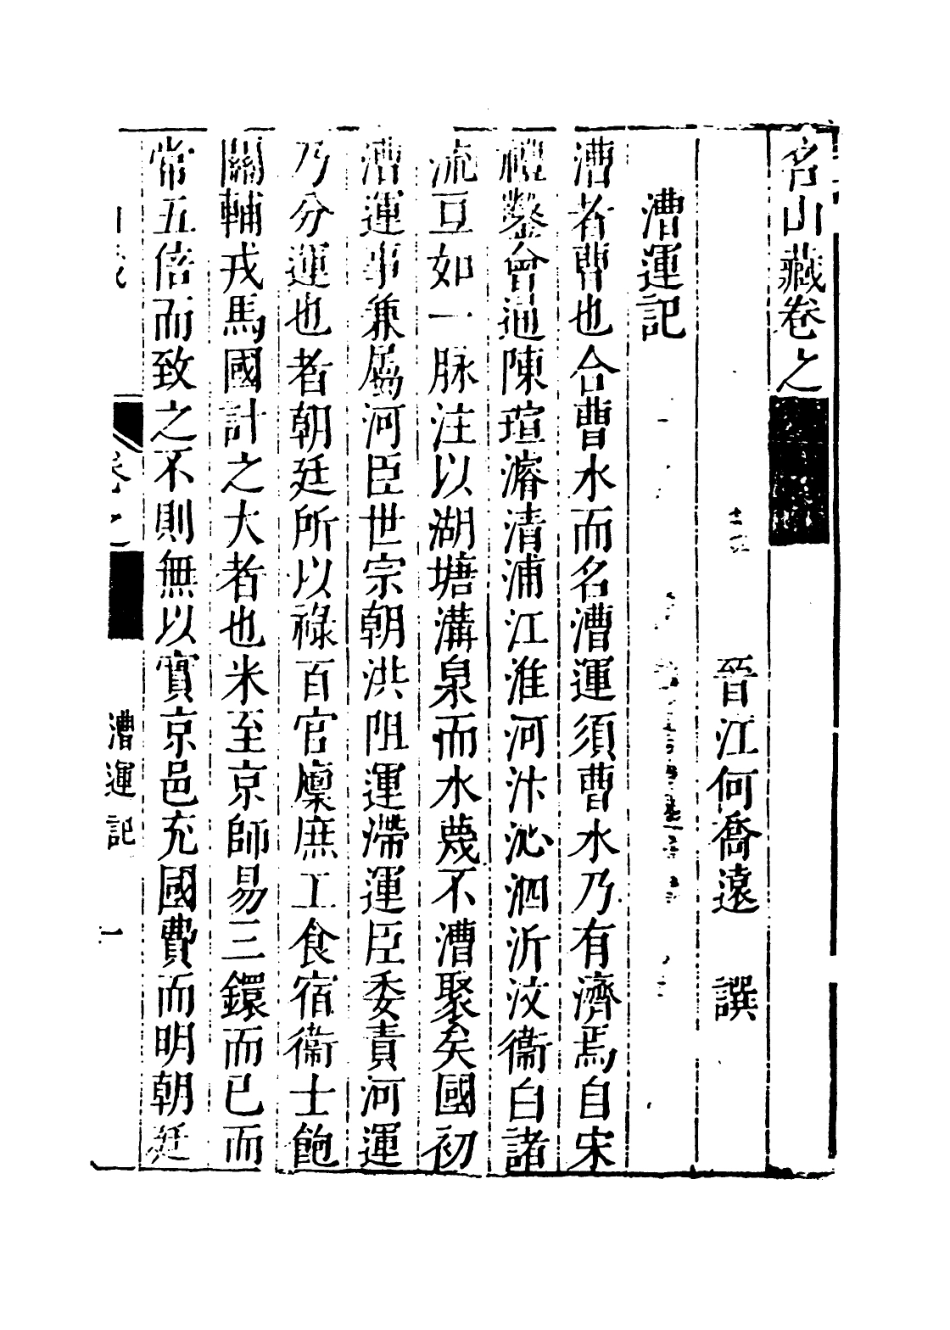 名山藏卷之
晉江何喬遠 譔
漕運記
漕者曹也合曹水而名漕運須曹水乃有濟焉自宋
禮鑿會通陳瑄濬清浦江淮河汴沁泗沂汶衞白諸
流亘如一脉注以湖塘溝泉而水蔑不漕聚矣國初
漕運事兼屬河臣世宗朝洪阻運滯運臣委責河運
乃分運也者朝廷所以祿百官廩庶工食宿衞士飽
關輔戎馬國計之大者也米至京師易三鐶而已而
常五倍而致之不則無以實京邑充國費而明朝廷
卷之
漕運記
一